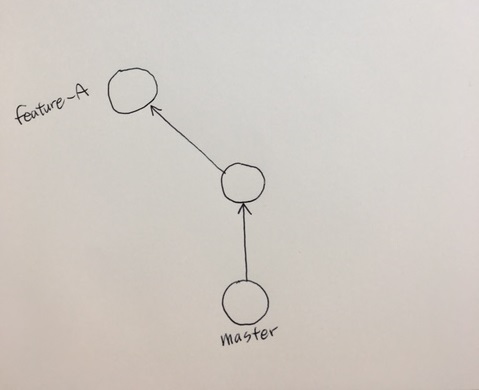 feature-A
master